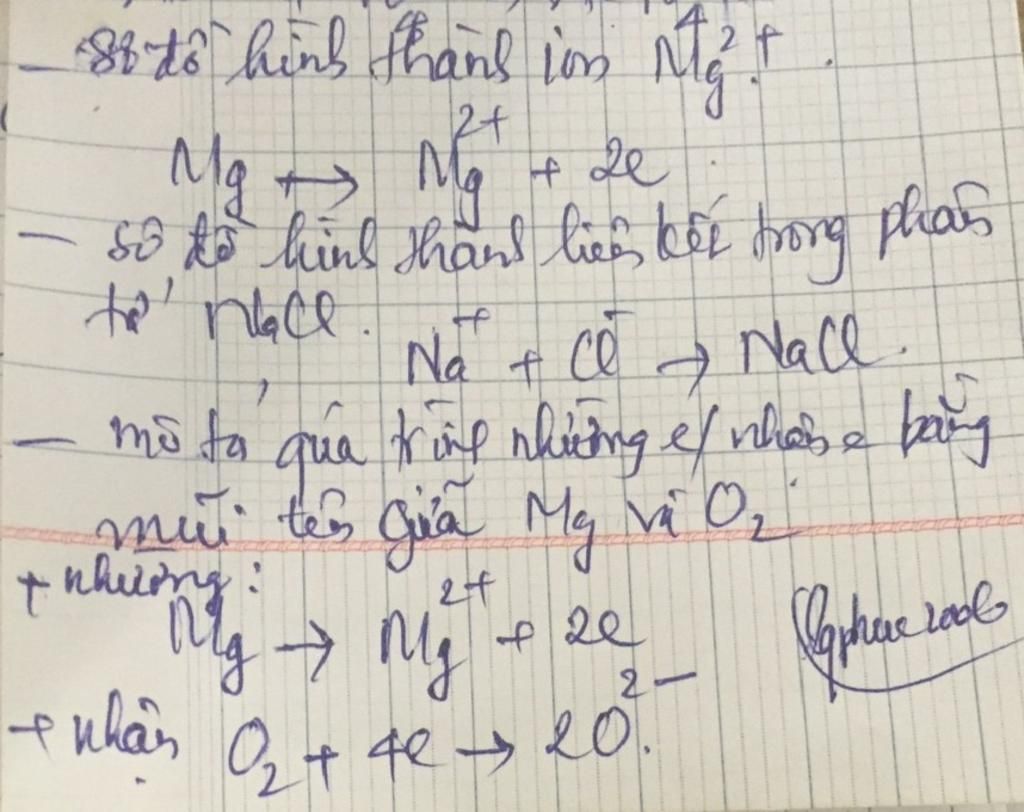 - Sơ đồ hình thành ion Mg²⁺.
Mg → Mg²⁺ + 2e
- Sơ đồ hình thành liên kết trong phân
tử NaCl.
Na⁺ + Cl⁻ → NaCl.
- mô tả quá trình nhường e/nhận e bằng
mũi tên giữa Mg và O₂
+ nhường:
Mg → Mg²⁺ + 2e
+ nhận O₂ + 4e → 2O²⁻.